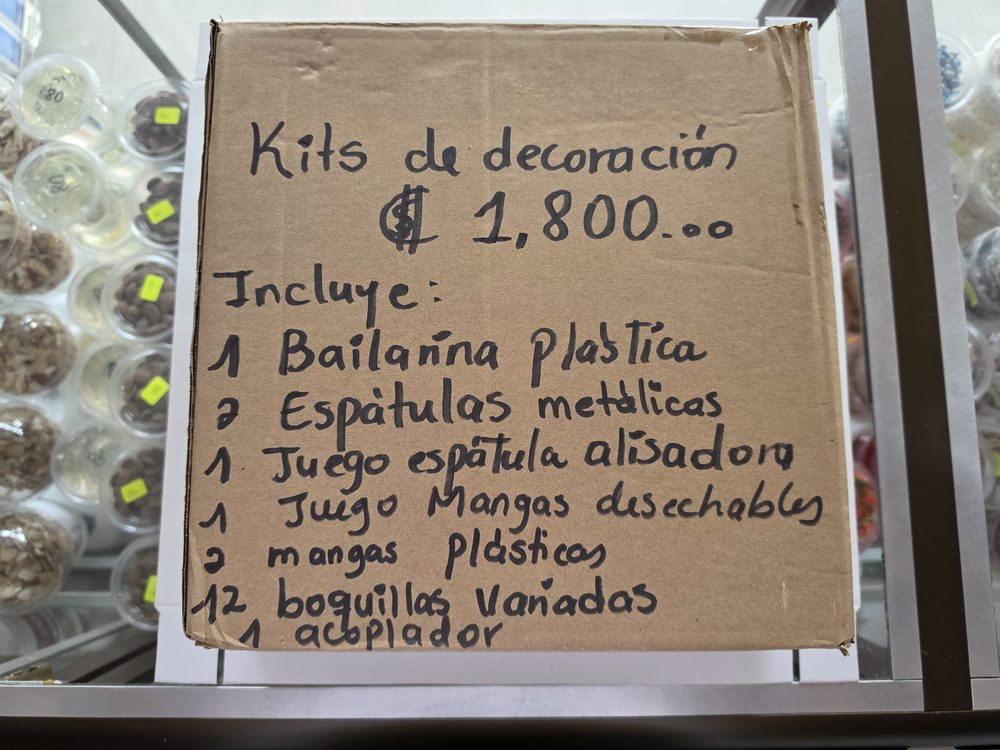 Kits de decoración
₡ 1,800.00
Incluye:
1 Bailarina plastica
2 Espátulas metálicas
1 Juego espátula alisadora
1 Juego Mangas desechables
2 mangas plásticas
12 boquillas variadas
1 acoplador